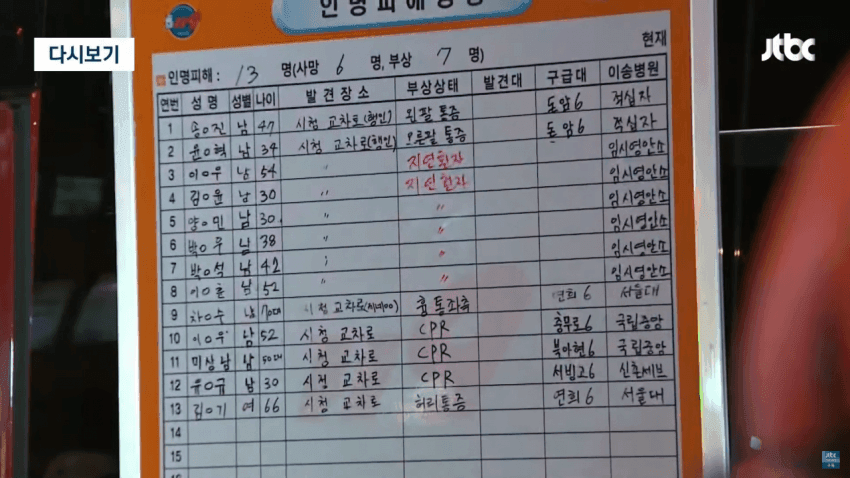 인명피해
다시보기
jtbc
현재
인명피해 : 13 명(사망 6 명, 부상 7 명)
연번 성명 성별 나이 발견장소 부상상태 발견대 구급대 이송병원
1 송○진 남 47 시청 교차로(행인) 왼팔 통증 돈암6 적십자
2 윤○혁 남 34 시청 교차로(행인) 오른팔 통증 돈암6 적십자
3 이○우 남 54 〃 지연환자 임시영안소
4 김○윤 남 30 〃 지연환자 임시영안소
5 양○민 남 30 〃 〃 임시영안소
6 박○우 남 38 〃 〃 임시영안소
7 박○석 남 42 〃 〃 임시영안소
8 이○훈 남 52 〃 〃 임시영안소
9 차○수 남 70대 시청 교차로 흉통좌측 연희6 서울대
10 이○우 남 52 시청 교차로 CPR 충무로6 국립중앙
11 미상남 남 50대 시청 교차로 CPR 북아현6 국립중앙
12 윤○규 남 30 시청 교차로 CPR 서빙고6 신촌세브
13 김○기 여 66 시청 교차로 허리통증 연희6 서울대
14
15
jtbc